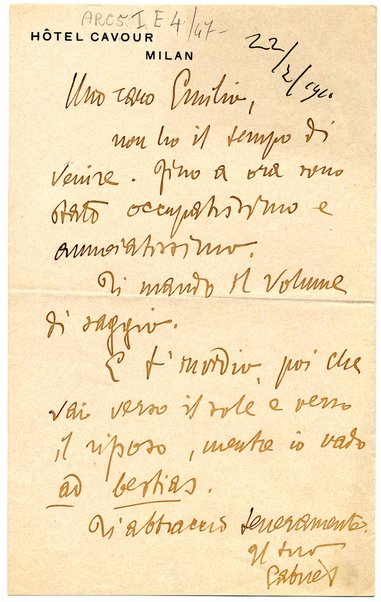 ARC 5 I E 4/47-
HÔTEL CAVOUR
MILAN
22/2/1910
Mio caro Emilio,
non ho il tempo di
venire. Fino a ora sono
stato occupatissimo e
annoiatissimo.
Ti mando il volume
di saggio.
E t'invidio, poi che
vai verso il sole e verso
il riposo, mentre io vado
ad bestias.
Ti abbraccio teneramente.
Il tuo
Gabriel